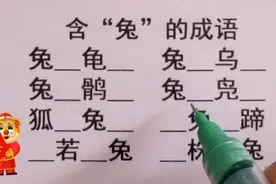 含“兔”的成语
兔__龟__ 兔__乌__
兔__鹄__ 兔__凫__
狐__兔__ __兔__蹄
__若__兔 __株__兔